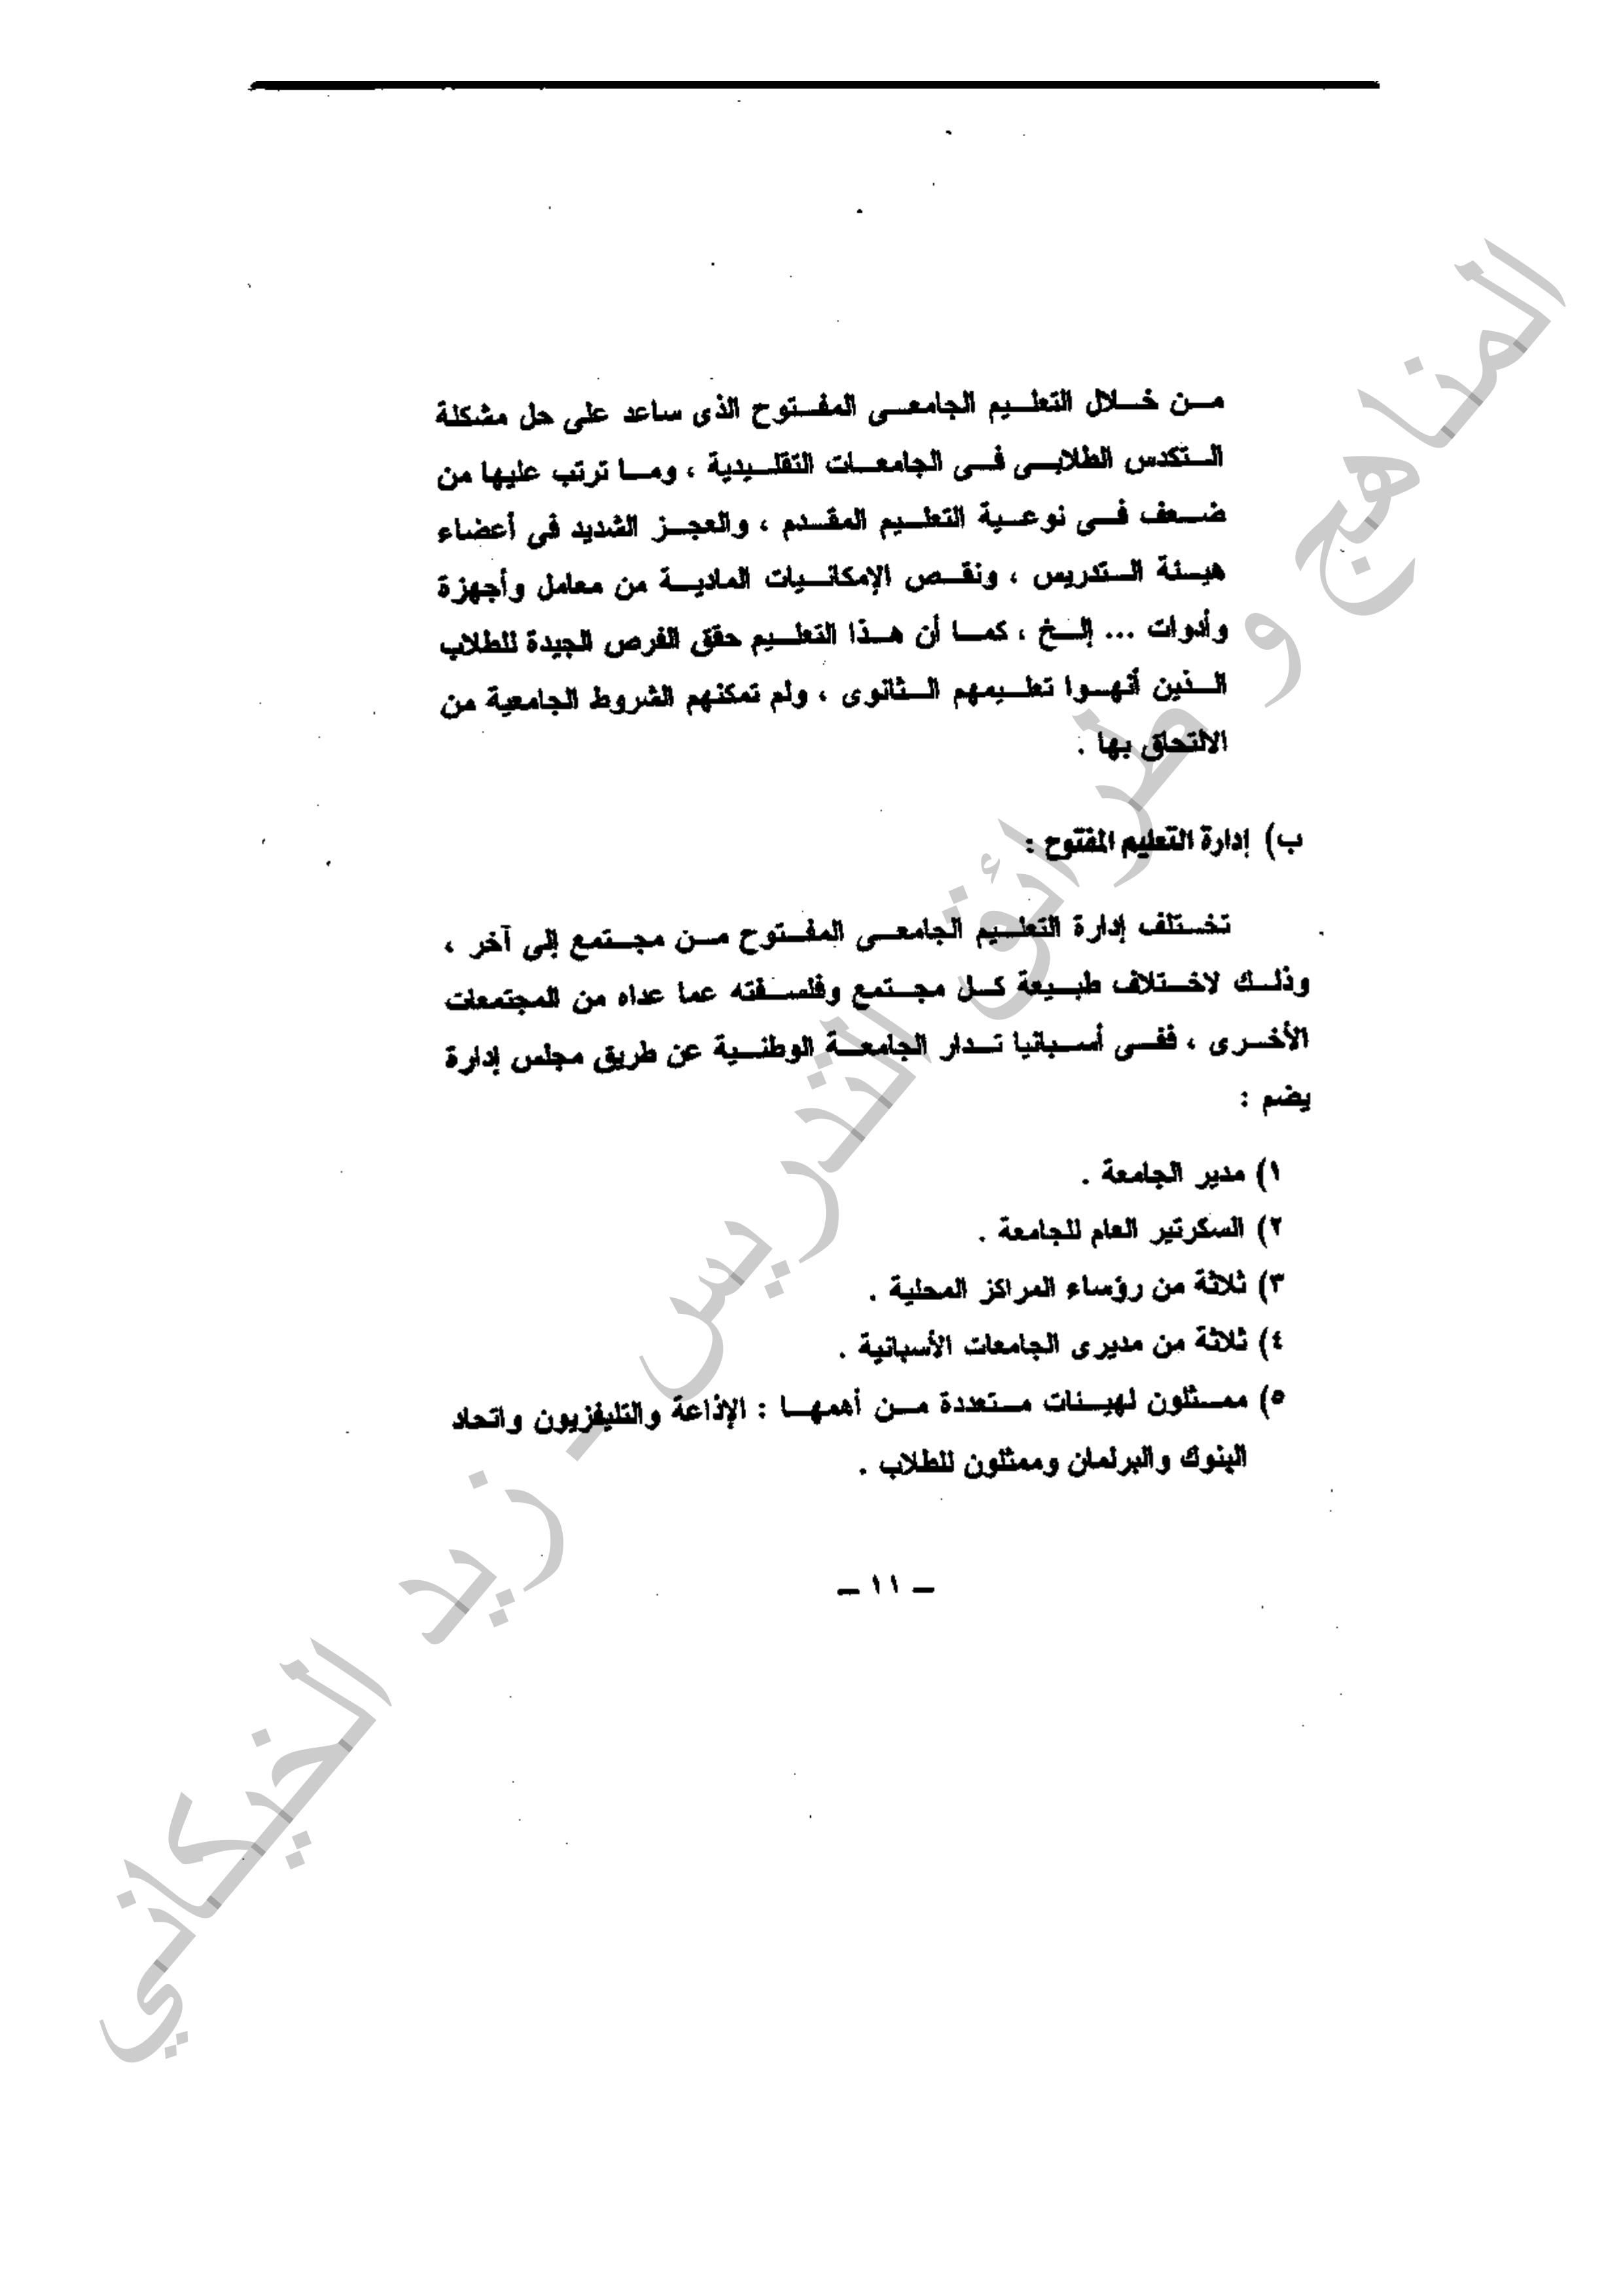 من خلال التعليم الجامعى المفتوح الذى ساعد على حل مشكلة
التكدس الطلابى فى الجامعات التقليدية ، وما ترتب عليها من
ضعف فى نوعية التعليم المقدم ، والعجز الشديد فى أعضاء
هيئة التدريس ، ونقص الإمكانيات المادية من معامل وأجهزة
وأدوات ... إلخ ، كما أن هذا التعليم حقق الفرص الجيدة للطلاب
الذين أنهوا تعليمهم الثانوى ، ولم تمكنهم الشروط الجامعية من
الالتحاق بها .
ب) إدارة التعليم المفتوح :
تختلف إدارة التعليم الجامعى المفتوح من مجتمع إلى آخر ،
وذلك لاختلاف طبيعة كل مجتمع وفلسفته عما عداه من المجتمعات
الأخرى ، ففى أسبانيا تدار الجامعة الوطنية عن طريق مجلس إدارة
يضم :
١) مدير الجامعة .
٢) السكرتير العام للجامعة .
٣) ثلاثة من رؤساء المراكز المحلية .
٤) ثلاثة من مديرى الجامعات الأسبانية .
٥) ممثلون لهيئات متعددة من أهمها : الإذاعة والتليفزيون واتحاد
البنوك والبرلمان وممثلون للطلاب .
ــ ١١ ــ
المناهج و طرائق التدريس - زيد الخيكاني